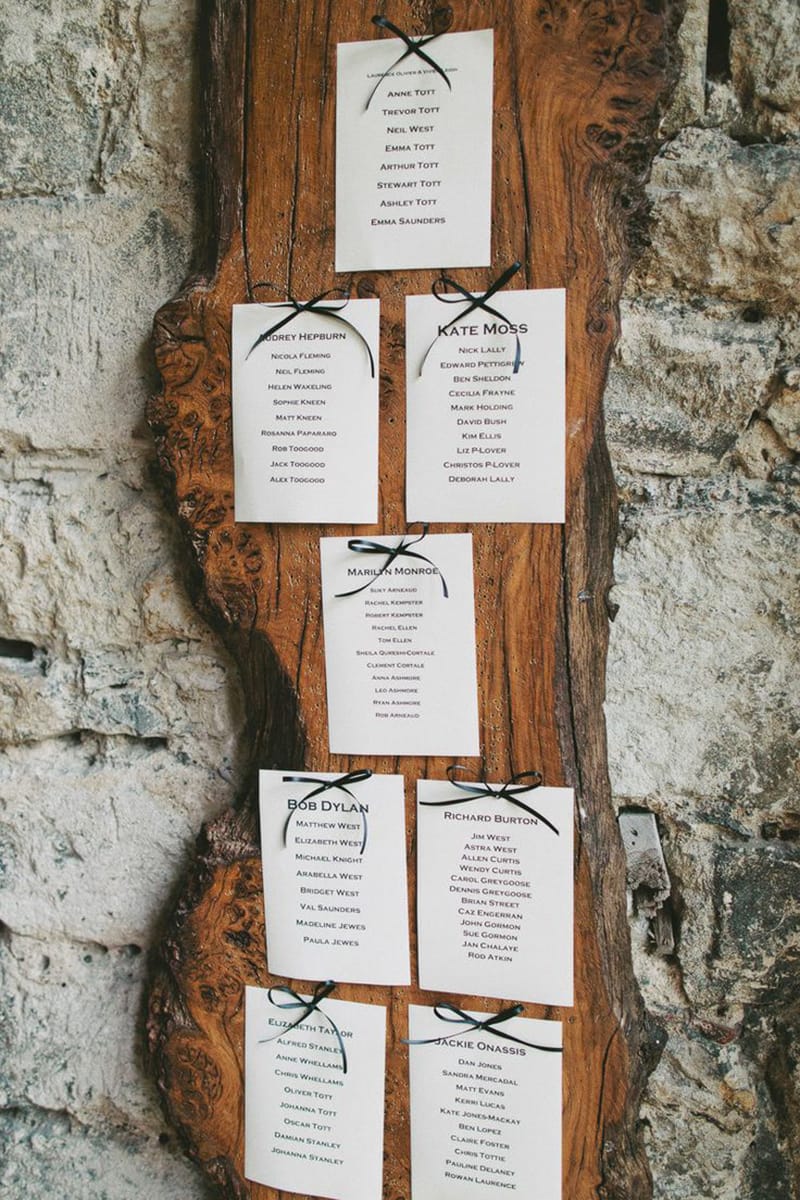 Laurence Olivier & Vivien Leigh
Anne Tott
Trevor Tott
Neil West
Emma Tott
Arthur Tott
Stewart Tott
Ashley Tott
Emma Saunders
Audrey Hepburn
Nicola Fleming
Neil Fleming
Helen Wakeling
Sophie Kneen
Matt Kneen
Rosanna Papararo
Rob Toogood
Jack Toogood
Alex Toogood
Kate Moss
Nick Lally
Edward Pettigrew
Ben Sheldon
Cecilia Frayne
Mark Holding
David Bush
Kim Ellis
Liz P-Lover
Christos P-Lover
Deborah Lally
Marilyn Monroe
Suky Arneaud
Rachel Kempster
Robert Kempster
Rachel Ellen
Tom Ellen
Sheila Qureshi-Cortale
Clement Cortale
Anna Ashmore
Leo Ashmore
Ryan Ashmore
Rob Arneaud
Bob Dylan
Matthew West
Elizabeth West
Michael Knight
Arabella West
Bridget West
Val Saunders
Madeline Jewes
Paula Jewes
Richard Burton
Jim West
Astra West
Allen Curtis
Wendy Curtis
Carol Greygoose
Dennis Greygoose
Brian Street
Caz Engerran
John Gormon
Sue Gormon
Jan Chalaye
Rod Atkin
Elizabeth Taylor
Alfred Stanley
Anne Whellams
Chris Whellams
Oliver Tott
Johanna Tott
Oscar Tott
Damian Stanley
Johanna Stanley
Jackie Onassis
Dan Jones
Sandra Mercadal
Matt Evans
Kerri Lucas
Kate Jones-Mackay
Ben Lopez
Claire Foster
Chris Tottie
Pauline Delaney
Rowan Laurence